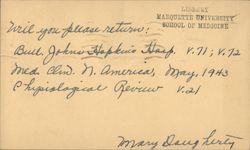 LIBRARY
MARQUETTE UNIVERSITY
SCHOOL OF MEDICINE
Will you please return:
Bull. Johns Hopkins Hosp. V.71; V.72
Med. Clin. N. America, May, 1943
Physiological Review V.21
Mary Dougherty